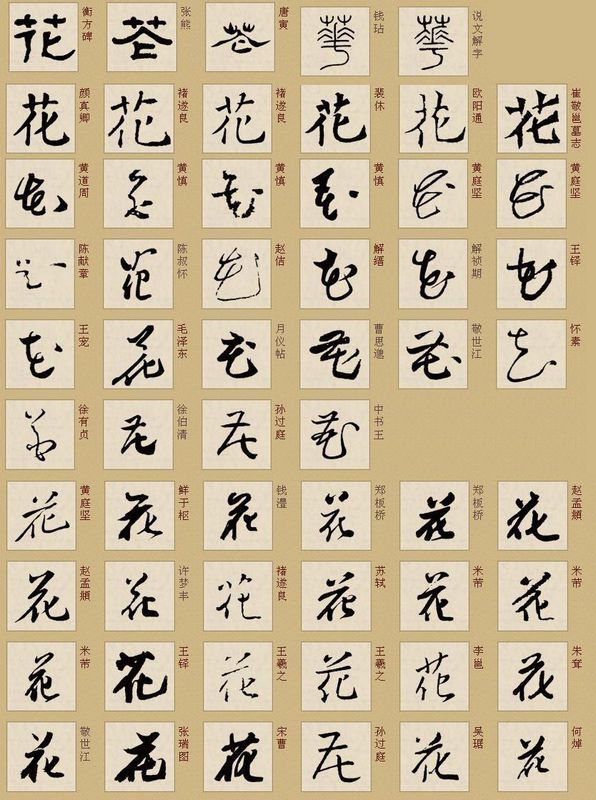 花 衡方碑 花 张熊 花 唐寅 華 钱玷 華 说文解字
花 颜真卿 花 褚遂良 花 褚遂良 花 裴休 花 欧阳通 花 崔敬邕墓志
花 黄道周 花 黄慎 花 黄慎 花 黄慎 花 黄庭坚 花 黄庭坚
花 陈献章 花 陈叔怀 花 赵佶 花 解缙 花 解祯期 花 王铎
花 王宠 花 毛泽东 花 月仪帖 花 曹思邈 花 敬世江 花 怀素
花 徐有贞 花 徐伯清 花 孙过庭 花 中书王
花 黄庭坚 花 鲜于枢 花 钱澧 花 郑板桥 花 郑板桥 花 赵孟頫
花 赵孟頫 花 许梦丰 花 褚遂良 花 苏轼 花 米芾 花 米芾
花 米芾 花 王铎 花 王羲之 花 王羲之 花 李邕 花 朱耷
花 敬世江 花 张瑞图 花 宋曹 花 孙过庭 花 吴琚 花 何焯